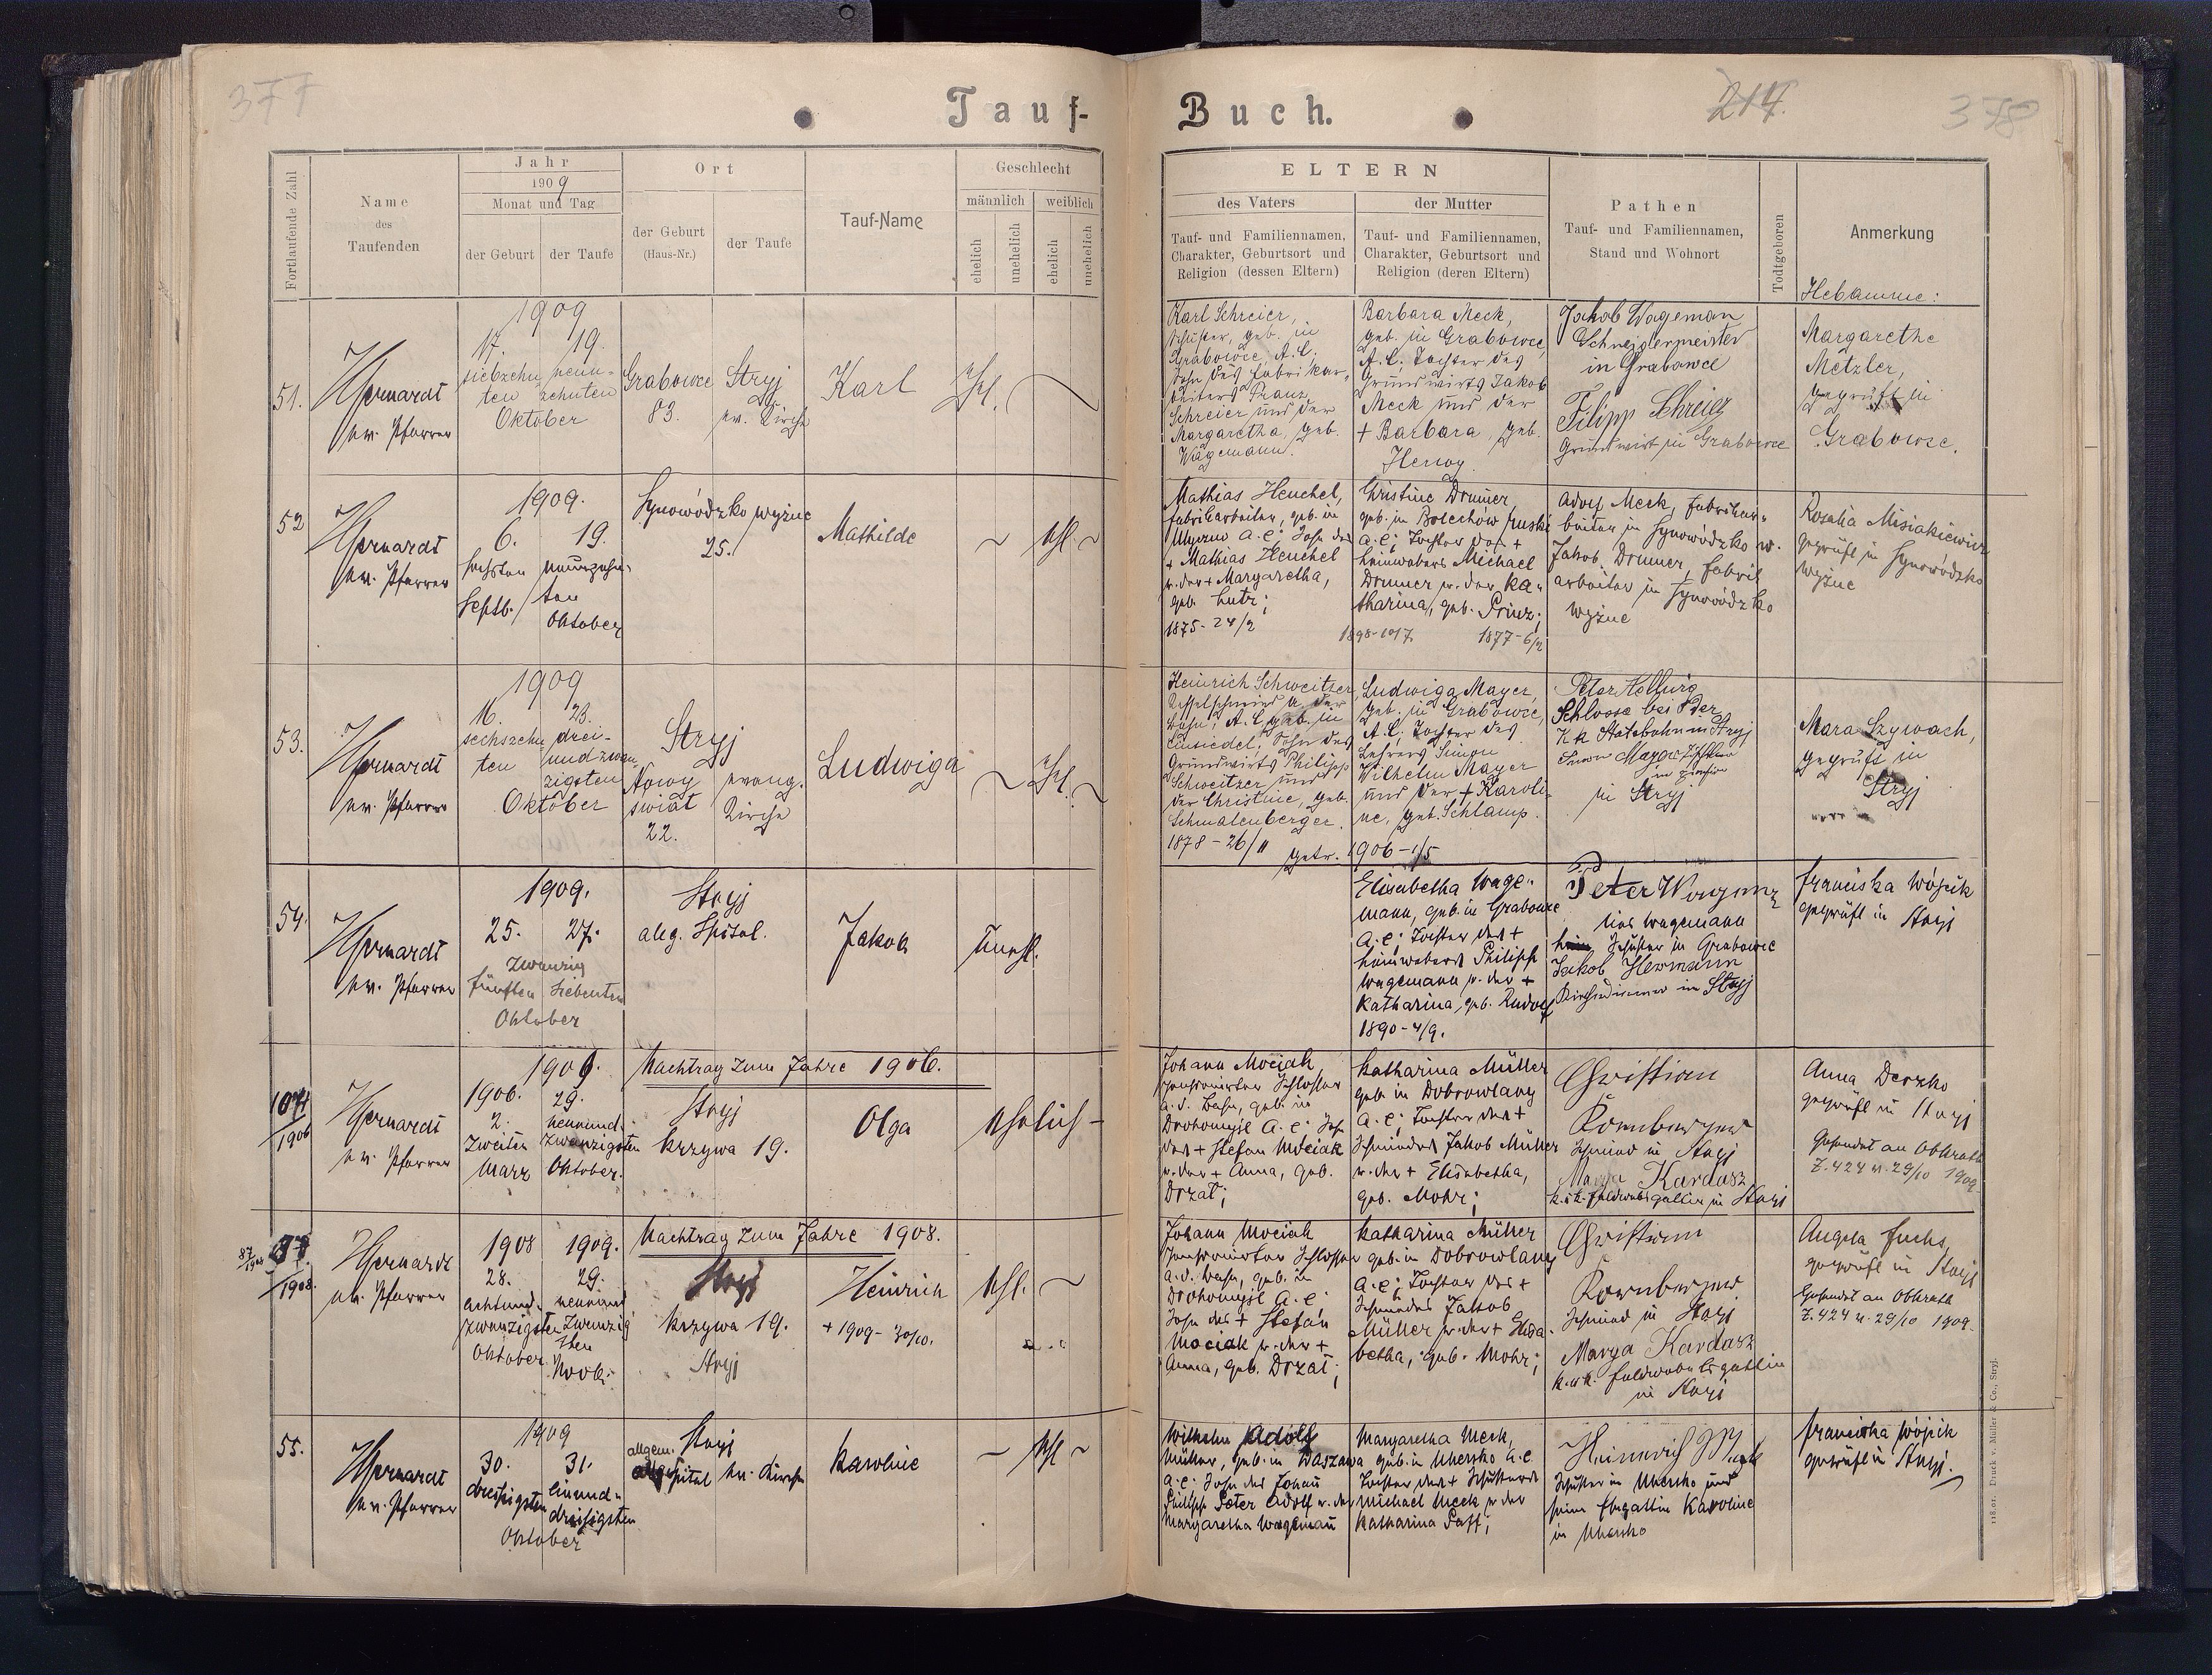 377
Tauf-
Buch.
214.
378
Fortlaufende Zahl
Name
des
Taufenden
Jahr
1909
Monat und Tag
der Geburt
der Taufe
Ort
der Geburt
(Haus-Nr.)
der Taufe
Tauf-Name
Geschlecht
männlich
weiblich
ehelich
unehelich
ehelich
unehelich
ELTERN
des Vaters
Tauf- und Familiennamen,
Charakter, Geburtsort und
Religion (dessen Eltern)
der Mutter
Tauf- und Familiennamen,
Charakter, Geburtsort und
Religion (deren Eltern)
Pathen
Tauf- und Familiennamen,
Stand und Wohnort
Todtgeboren
Anmerkung
Hebamme:
51.
ev. Pfarrer
1909
17.
19.
siebzehn
neun-
ten
zehnten
Oktober
Grabowce
83.
Stryj
ev. Kirche
Karl
Ehl.
Karl Schreier,
Schuster, geb. in
Grabowce, A.C.
Sohn des Fabrikar-
beiters Franz
Schreier und der
Margaretha, geb.
Wagemann.
Barbara Meck,
geb. in Grabowce,
A.C. Tochter des
Grundwirts Jakob
Meck und der
+ Barbara, geb.
Jakob Wageman
in Grabowce
Filipp Schreier
Grundwirt in Grabowce
Margarethe
Metzler,
geprüft in
Grabowce.
52
ev. Pfarrer
1909.
6.
19.
sechsten
neunzehn-
Septb.
ten
Oktober
Synowódzko wyżne
25.
Mathilde
ehl.
Mathias Heuchel,
Fabrikarbeiter, geb. in
Ugerne A.C; Sohn des
+ Mathias Heuchel
u. der + Margaretha,
geb. Lutz;
1875-24/2
Christine Drumer,
geb. in Bolechów ruski
A.C; Tochter des +
Leinwebers Michael
Drumer u. der Ka-
tharina, geb. Prinz;
1877-6/2
Adolf Meck, Fabrikar-
beiter in Synowódzko w.
Jakob Drumer, Fabrik
arbeiter in Synowódzko
wyżne
Rosalia Misiakiewicz
geprüft in Synowódzko
wyżne
53.
ev. Pfarrer
1909
16.
23.
sechszehn
drei-
ten
undzwan-
zigsten
Oktober
Stryj
Nowy
świat
22.
evang.
Kirche
Ludwiga
Ehl.
Heinrich Schweitzer,
Kesselschmied a. der
Bahn, A.C, geb. in
Einsiedel; Sohn des
Grundwirts Philipp
Schweitzer und
der Christine, geb.
Schmalenberger.
1878 - 26/11
getr. 1906 - 1/5
Ludwiga Mayer,
geb. in Grabowce,
A.C. Tochter des
Lehrers Simon
Wilhelm Mayer
und der + Karoli-
ne, geb. Schlamp.
Schlosse bei der
K k Statsbahn in Stryj
in Stryj
Mara Szywach,
geprüft in
Stryj
54.
ev. Pfarrer
1909.
25.
27.
zwanzig
fünften
siebenten
Oktober
Stryj
allg. Spital.
Jakob
Unehl.
Elisabetha Wage-
mann, geb. in Grabowce
A.C; Tochter des +
Leinwebers Philipp
Wagemann u. der +
Katharina, geb. Rudolf
1890 - 4/9.
Wagemann
Schuster in Grabowce
Jakob Hermann
Kirchendiener in Stryj
Franciska Wójcik
geprüft in Stryj
104
1906
ev. Pfarrer
1909.
1906.
29.
2.
neunund-
zweiten
zwanzigsten
März
Oktober.
Nachtrag zum Jahre 1906.
Stryj
Krzywa 19.
Olga
ehelich -
Johann Mociak
pensionierter Schlosser
a.d. Bahn, geb. in
Drohomysl A.C. Sohn
des + Stefan Mociak
u. der + Anna, geb.
Drzat;
Katharina Müller
geb. in Dobrowlany
A.C; Tochter des +
Schmiedes Jakob Müller
u. der + Elisabetha,
geb. Mohr;
Christian
Schmied in Stryj
Marya Kardasz
k.u.k. Feldwebelsgattin in Stryj
Anna Derzko
geprüft in Stryj
Z. 424 u. 29/10 1909.
87
1908.
ev. Pfarrer
1908
1909.
28.
29.
achtund-
neunund
zwanzigsten
zwanzig
sten
Oktober
Novb.
Nachtrag zum Jahre 1908.
Stryj
Krzywa 19.
Stryj
Heinrich
+ 1909 - 30/10.
Ehl.
Johann Mociak
pensionierter Schlosser
a.d. Bahn, geb. in
Drohomysl A.C.
Sohn des + Stefan
Mociak u. der +
Anna, geb. Drzat;
Katharina Müller
geb. in Dobrowlany
A.C; Tochter des +
Schmiedes Jakob
Müller u. der + Elisa-
betha, geb. Mohr;
Christian
Schmied in Stryj
Marya Kardasz
k.u.k. Feldwebelsgattin
in Stryj
Angela Fuchs,
geprüft in Stryj
Z. 424 u. 29/10 1909.
55.
ev. Pfarrer
1909
30.
31.
dreissigsten
einund-
dreissigsten
Oktober
Stryj
allgem.
Spital
ev. Kirche
Karoline
Ehl
Wilhelm Adolf
Müller, geb. in Warszawa
A.C. Sohn des Johann
Philipp Peter Adolf u. der
Margaretha Wagemann
Margaretha Meck,
geb. in Uhersko A.C.
Tochter des + Schusters
Michael Meck u. der
Katharina Paff;
Heinrich Meck
Schuster in Uhersko und
seine Ehegattin Karoline
in Uhersko
Franciska Wójcik
geprüft in Stryj.
118.01. Druck v. Müller & Co., Stryj.